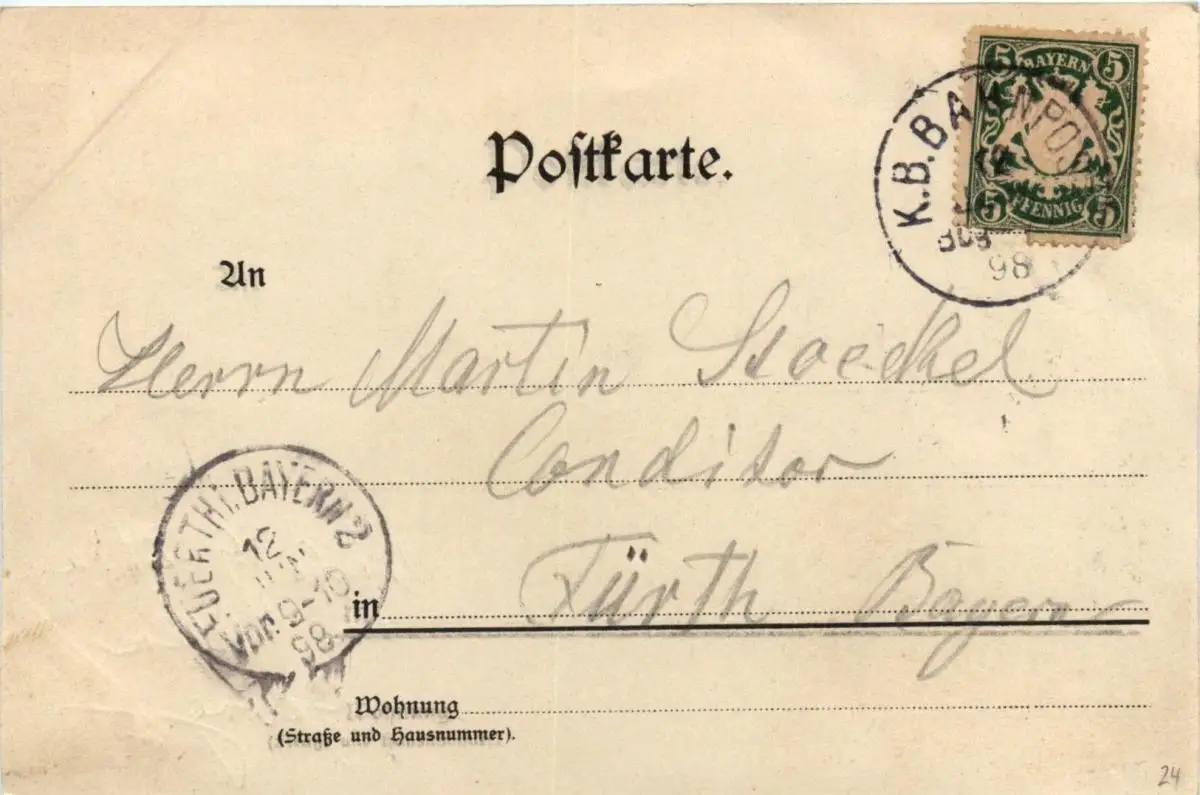 5 BAYERN 5
5 PFENNIG 5
K.B. BAHNPOST
12
98
Postkarte.
An
Herrn Martin Stoeckel
Conditor
in Fürth Bayern
FUERTH I. BAYERN 2
12
VOR. 9-10
98
Wohnung
(Straße und Hausnummer).
24